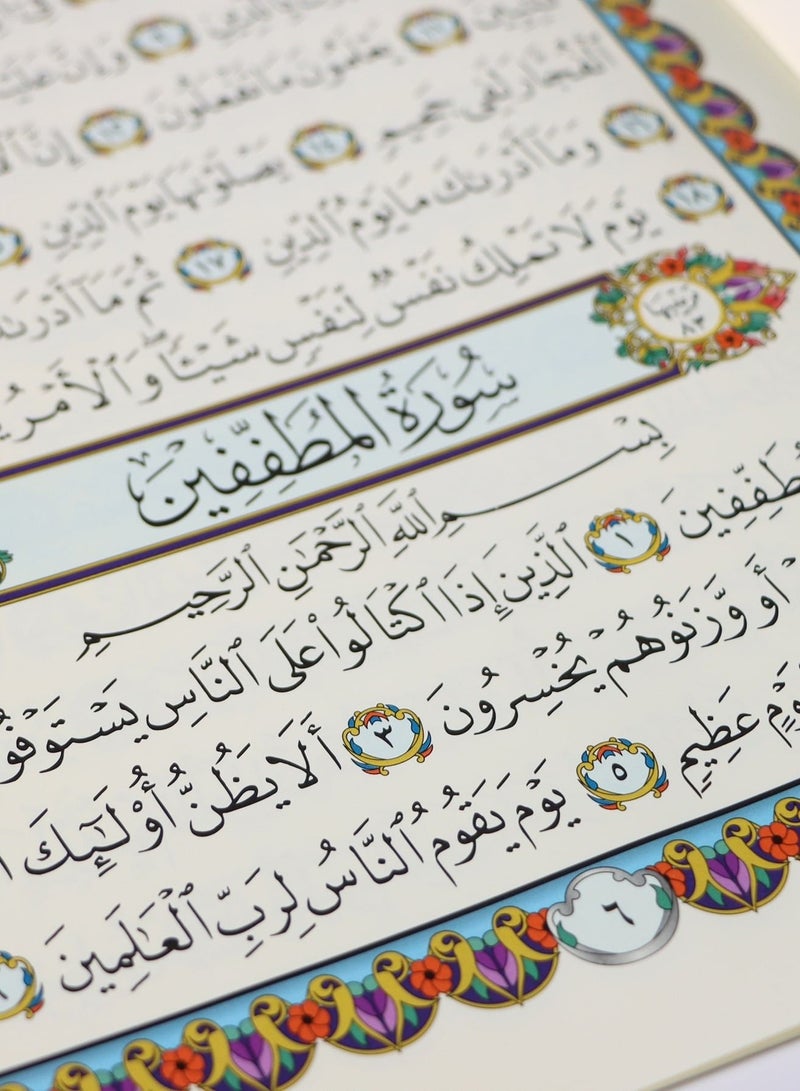 ٱلدِّينِ ٩ وَإِنَّ
يَعْلَمُونَ مَا تَفْعَلُونَ ١٢ إِنَّ
ٱلْفُجَّارَ لَفِى جَحِيمٍ ١٤ يَصْلَوْنَهَا يَوْمَ ٱلدِّينِ
١٦ وَمَآ أَدْرَىٰكَ مَا يَوْمُ ٱلدِّينِ ١٧ ثُمَّ مَآ أَدْرَىٰ
١٨ يَوْمَ لَا تَمْلِكُ نَفْسٌ لِّنَفْسٍ شَيْـًٔا ۖ وَٱلْأَمْرُ
ترتيبها ٨٣
سُورَةُ المُطَفِّفِينَ
بِسْمِ ٱللَّهِ ٱلرَّحْمَٰنِ ٱلرَّحِيمِ
طَفِّفِينَ ١ ٱلَّذِينَ إِذَا ٱكْتَالُوا۟ عَلَى ٱلنَّاسِ يَسْتَوْفُ
أَو وَّزَنُوهُمْ يُخْسِرُونَ ٣ أَلَا يَظُنُّ أُو۟لَٰٓئِكَ
عَظِيمٍ ٥ يَوْمَ يَقُومُ ٱلنَّاسُ لِرَبِّ ٱلْعَٰلَمِينَ ٦
٦